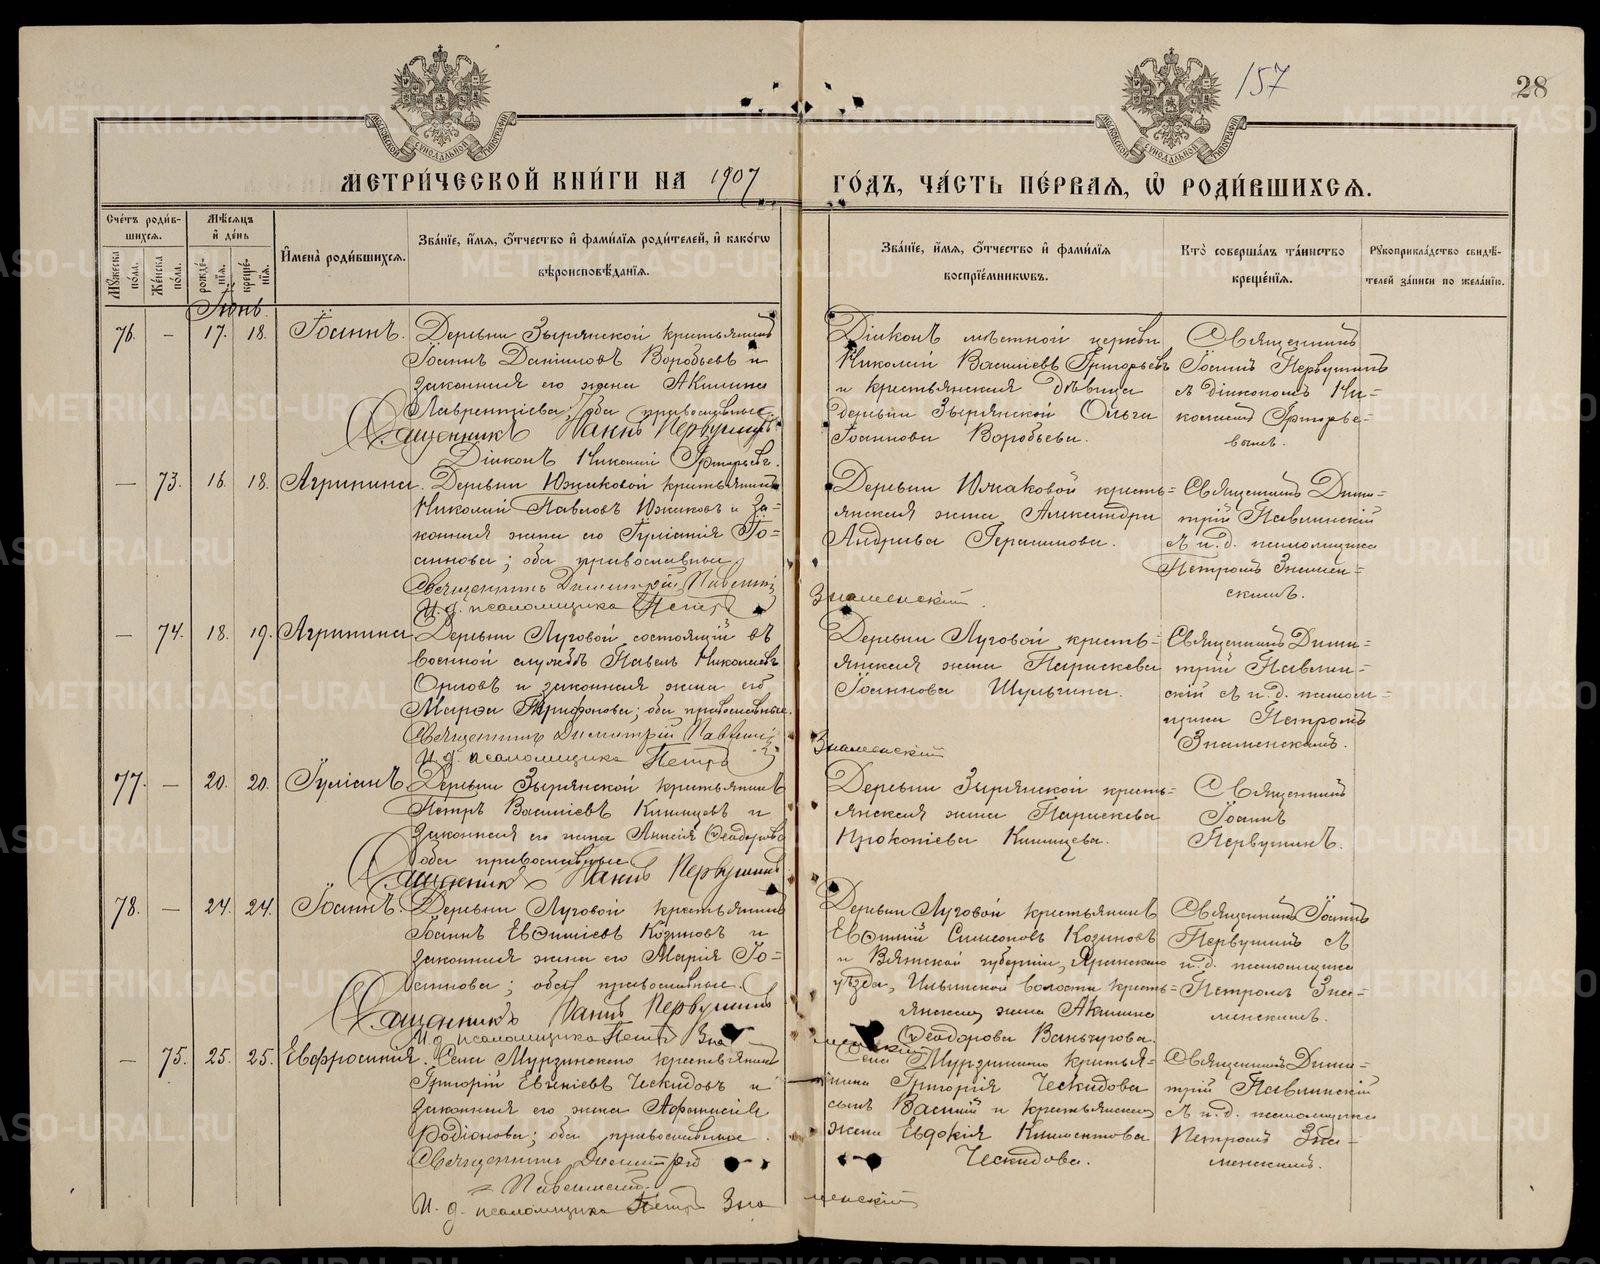 157
28
МЕТРИ́ЧЕСКОЙ КНИ́ГИ НА 1907 ГО́ДЪ, ЧА́СТЬ ПЕ́РВАѦ, Ѡ҆ РОДИ́ВШИХСѦ.
Сче́тъ роди́вшихсѧ.
Мѣ́сѧцъ и҆ де́нь
И҆мена̀ роди́вшихсѧ.
Зва́нїе, и҆́мѧ, ѻ҆́тчество и҆ фами́лїѧ роди́телей, и҆ како́гѡ
вѣроисповѣ́данїѧ.
Зва́нїе, и҆́мѧ, ѻ҆́тчество и҆ фами́лїѧ
воспрїе́мниковъ.
Кто̀ соверша́лъ та́инство
креще́нїѧ.
Рꙋкоприкла́дство свидѣ́-
телей за́писи по жела́нїю.
Мꙋ́жеска по́ла.
Же́нска по́ла.
рожде́нїѧ.
креще́нїѧ.
Іюнь.
76. — 17. 18. Іоаннъ.
Деревни Зырянской крестьянинъ
Іоаннъ Даніиловъ Воробьевъ и
законная его жена Акилина
Лаврентіева; оба православные.
Священникъ Іаннъ Первушинъ
Діаконъ Николай Григорьевъ.
Діаконъ мѣстной церкви
Николай Василіевъ Григорьевъ
и крестьянская дѣвица
деревни Зырянской Ольга
Іоаннова Воробьева.
Священникъ
Іоаннъ Первушинъ
съ діакономъ Ни-
колаемъ Григорье-
вымъ.
— 73. 16. 18. Агрипина.
Деревни Южаковой крестьянинъ
Николай Павловъ Южаковъ и за-
конная жена его Іуліанія Іо-
аннова; оба православные
Священникъ Димитрій Павлинскій
И. д. псаломщика Петръ
Знаменскій.
Деревни Южаковой кресть-
янская жена Александра
Андреева Герасимова.
Священникъ Дими-
трій Павлинскій
съ и. д. псаломщика
Петромъ Знамен-
скимъ.
— 74. 18. 19. Агрипина
Деревни Луговой, состоящій въ
военной службѣ Павелъ Николаевъ
Орловъ и законная жена его
Марѳа Трифонова; оба православные.
Священникъ Димитрій Павлинскій
И. д. псаломщика Петръ
Знаменскій
Деревни Луговой кресть-
янская жена Параскева
Іоаннова Шульгина.
Священникъ Дими-
трій Павлин-
скій съ и. д. псалом-
щика Петромъ
Знаменскимъ.
77. — 20. 20. Іуліанъ.
Деревни Зырянской крестьянинъ
Петръ Василіевъ Клищевъ и
законная его жена Анисія Ѳеодорова
оба православные
Священникъ Іаннъ Первушинъ
Деревни Зырянской кресть-
янская жена Параскева
Прокопіева Клищева.
Священникъ
Іоаннъ
Первушинъ.
78. — 24. 24. Іоаннъ.
Деревни Луговой крестьянинъ
Іоаннъ Евѳиміевъ Козиновъ и
законная жена его Марія Іо-
аннова; оба православные.
Священникъ Іаннъ Первушинъ
И. д. псаломщика Петръ Зна-
менскій
Деревни Луговой крестьянинъ
Евѳимій Симеоновъ Козиновъ
и Вятской губерніи, Яранскаго
уѣзда, Ильинской волости кресть-
янская жена Акилина
Ѳеодорова Ваньчугова.
Священникъ Іоаннъ
Первушинъ съ
и. д. псаломщика
Петромъ Зна-
менскимъ.
— 75. 25. 25. Евфросинія.
Села Мурзинскаго крестьянинъ
Григорій Евгеніевъ Ческидовъ и
законная его жена Афанасія
Родіонова; оба православные.
Священникъ Димитрій
Павлинскій.
И. д. псаломщика Петръ Зна
менскій
Села Мурзинскаго крестья-
нина Григорія Ческидова
сынъ Василій и крестьянская
жена Евдокія Климентова
Ческидова.
Священникъ Дими-
трій Павлинскій
съ и. д. псаломщика
Петромъ Зна-
менскимъ.
METRIKI.GASO-URAL.RU